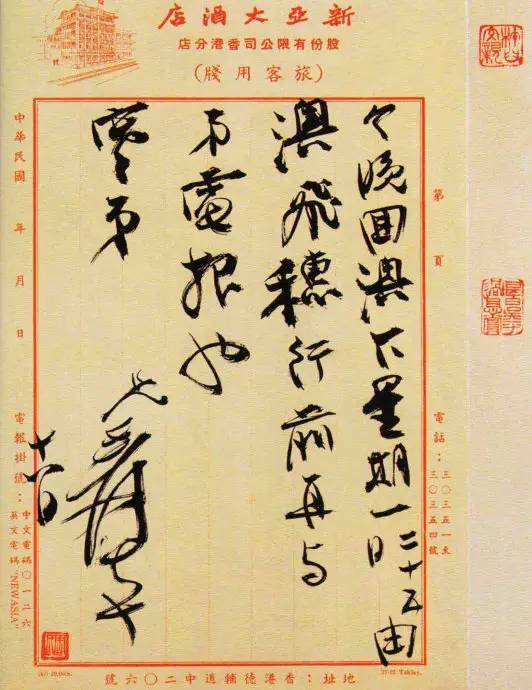 新亞大酒店
股份有限公司香港分店
(旅客用牋)
第 頁
電話：三〇三五一至
三〇三五四號
今晚囬澳下星期一二十五日由
澳飛穗行前再与
弟電報也
弟
兄爰
中華民國 年 月 日
電報掛號：中文電碼〇一二六
英文電碼"NEWASIA"
地址：香港德輔道中二〇六號